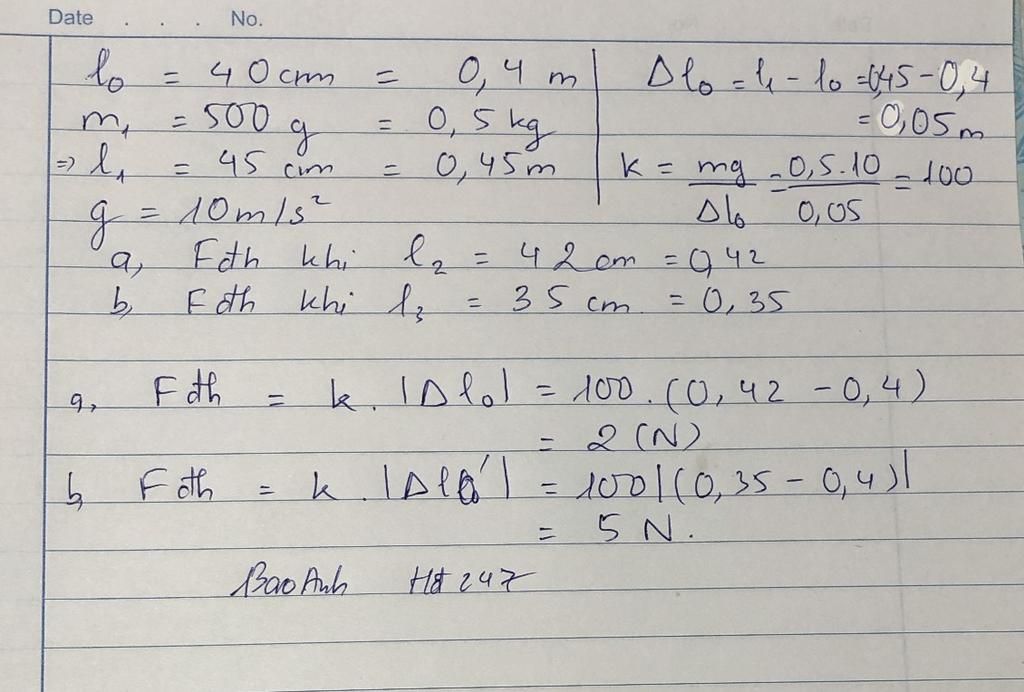 Date . . . No.
l₀ = 40cm = 0,4 m
m₁ = 500 g = 0,5 kg
=> l₁ = 45 cm = 0,45m
g = 10m/s²
Δl₀ = l₁ - l₀ = 0,45 - 0,4
= 0,05 m
k = mg/Δl₀ = 0,5.10/0,05 = 100
a, Fđh khi l₂ = 42cm = 0,42
b, Fđh khi l₃ = 35 cm = 0,35
a, Fđh = k. |Δl₀| = 100. (0,42 - 0,4)
= 2 (N)
b, Fđh = k. |Δl₀'| = 100|(0,35 - 0,4)|
= 5 N.
BaoAnh Hđ 247